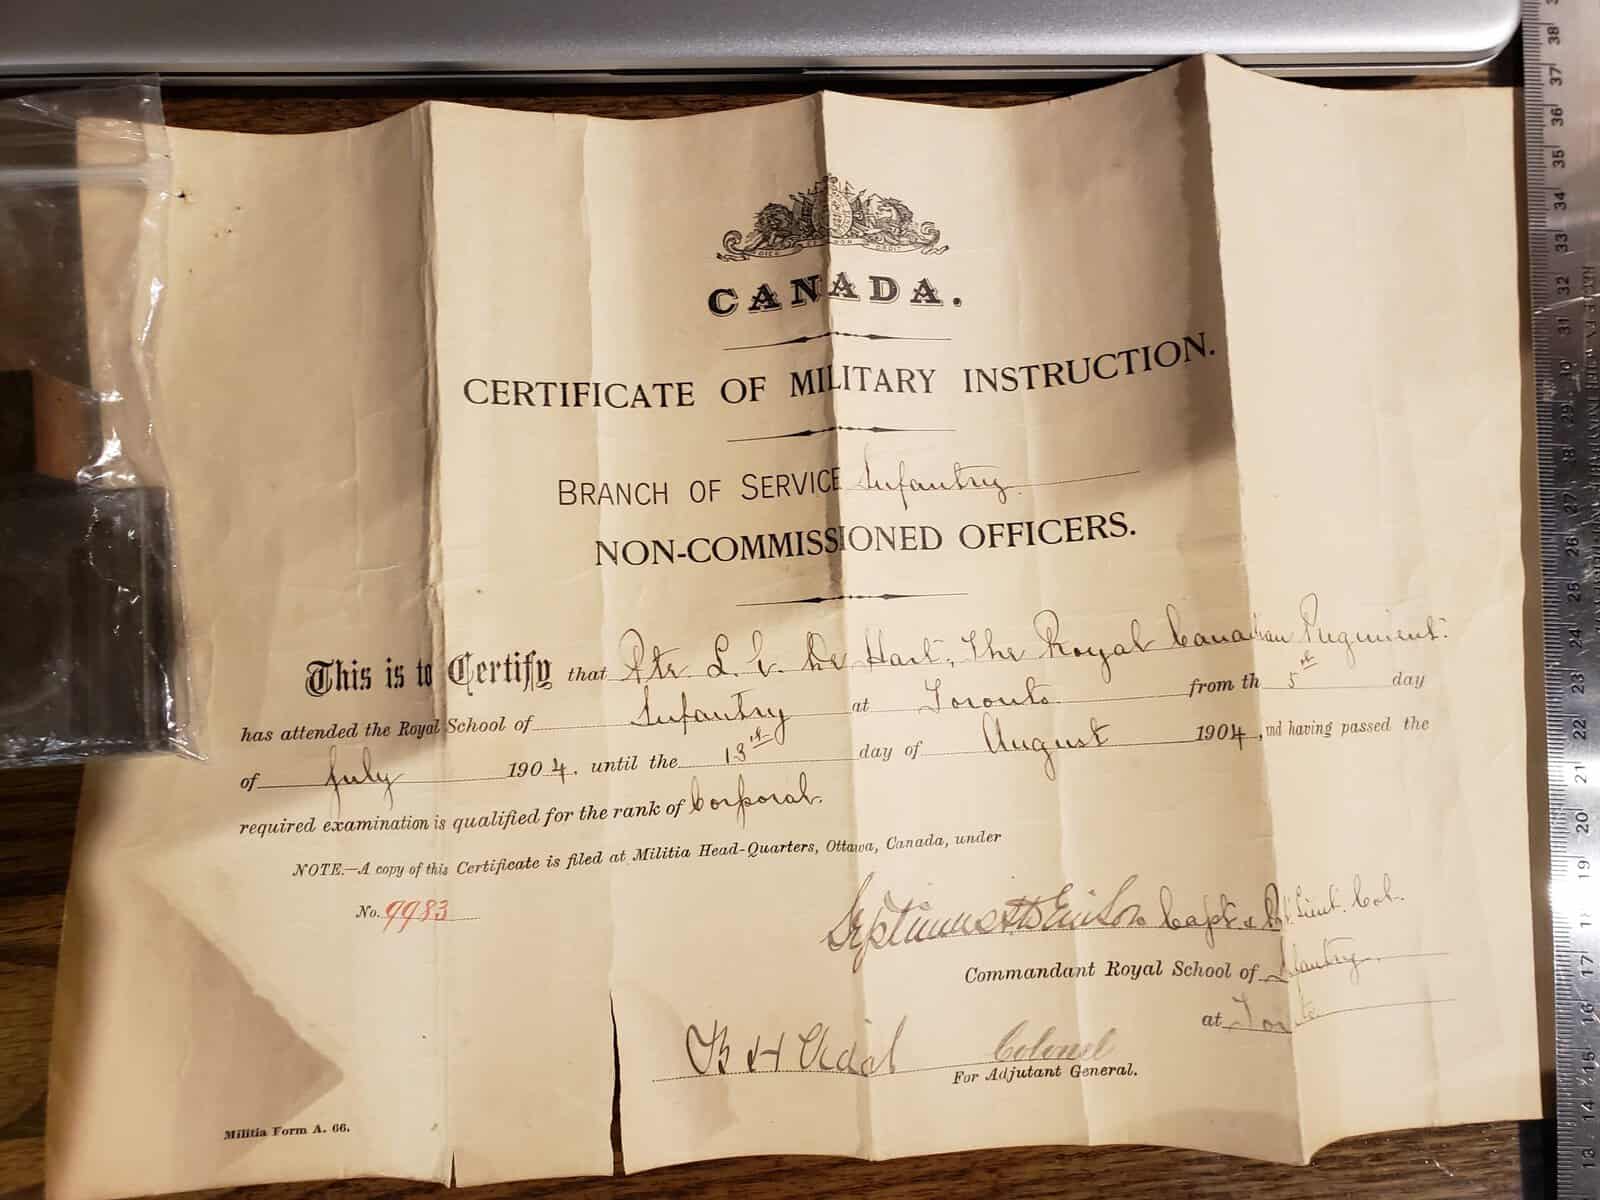 CANADA.
CERTIFICATE OF MILITARY INSTRUCTION.
BRANCH OF SERVICE Infantry
NON-COMMISSIONED OFFICERS.
This is to Certify that Pte. L. C. De Hart, The Royal Canadian Regiment.
has attended the Royal School of Infantry at Toronto from th 5th day
of July 1904. until the 13th day of August 1904, nd having passed the
required examination is qualified for the rank of Corporal.
NOTE.—A copy of this Certificate is filed at Militia Head-Quarters, Ottawa, Canada, under
No. 9983
Septimus Denison Capt & Bt Lieut. Col.
Commandant Royal School of Infantry
at Toronto
B H Vidal Colonel
For Adjutant General.
Militia Form A. 66.
38
37
36
35
34
33
32
31
30
29
28
27
26
25
24
23
22
21
20
19
18
17
16
15
14
13